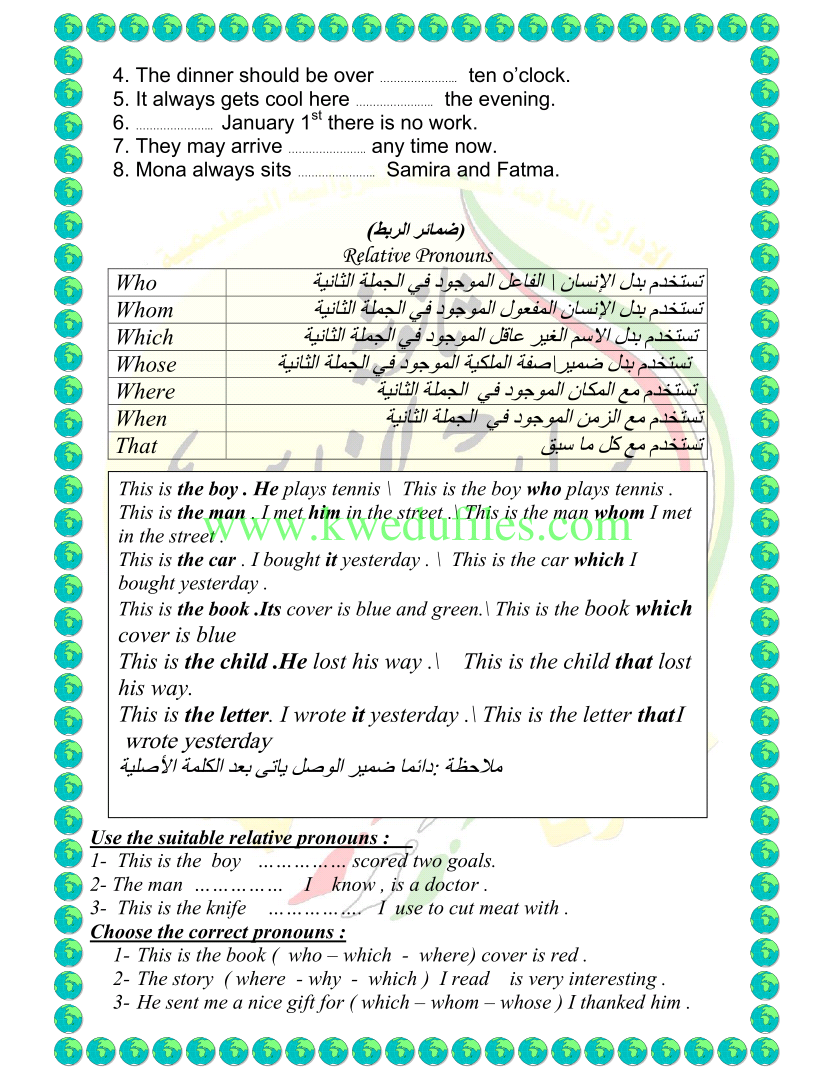 4. The dinner should be over ........................ ten o’clock.
5. It always gets cool here ........................ the evening.
6. ........................ January 1st there is no work.
7. They may arrive ........................ any time now.
8. Mona always sits ........................ Samira and Fatma.
(ضمائر الربط)
Relative Pronouns
Who تستخدم بدل الإنسان \ الفاعل الموجود في الجملة الثانية
Whom تستخدم بدل الإنسان المفعول الموجود في الجملة الثانية
Which تستخدم بدل الاسم الغير عاقل الموجود في الجملة الثانية
Whose تستخدم بدل ضمير\صفة الملكية الموجود في الجملة الثانية
Where تستخدم مع المكان الموجود في الجملة الثانية
When تستخدم مع الزمن الموجود في الجملة الثانية
That تستخدم مع كل ما سبق
This is the boy . He plays tennis \ This is the boy who plays tennis .
This is the man . I met him in the street .\ This is the man whom I met
in the street .
www.kweduffies.com
This is the car . I bought it yesterday . \ This is the car which I
bought yesterday .
This is the book .Its cover is blue and green.\ This is the book which
cover is blue
This is the child .He lost his way .\ This is the child that lost
his way.
This is the letter. I wrote it yesterday .\ This is the letter that I
wrote yesterday
ملاحظة :دائما ضمير الوصل ياتى بعد الكلمة الأصلية
Use the suitable relative pronouns :
1- This is the boy …………… scored two goals.
2- The man …………… I know , is a doctor .
3- This is the knife ……………. I use to cut meat with .
Choose the correct pronouns :
1- This is the book ( who – which - where) cover is red .
2- The story ( where - why - which ) I read is very interesting .
3- He sent me a nice gift for ( which – whom – whose ) I thanked him .